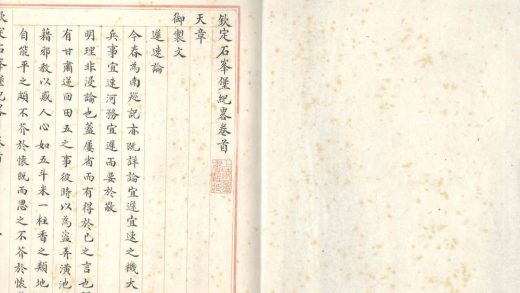 欽定石峯堡紀畧卷首
天章
御製文
遲速論
今春為南巡記亦既詳論宜遲宜速之機大
兵事宜速河務宜遲而要於敬
明理非漫論也蓋屢省而有得於己之言也
有甘肅逆回田五之事彼時以為盜弄潢池
藉邪教以惑人心如五斗米一炷香之類地
自能平之頗不芥於懷既而思之不芥於懷
欽定石峯堡紀畧 卷首